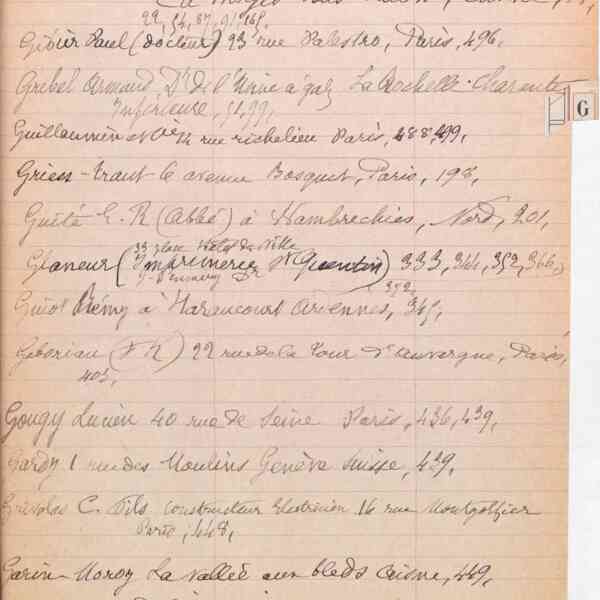 22, 54, 87, 91, 168,
Gibier Paul (docteur) 23 rue Palestro, Paris, 496,
Grebel Armand Dr de l'Usine à gaz La Rochelle. Charente
Inférieure, 51,99,
Guillaumin et Cie 14 rue richelieu Paris, 488,499,
Grien-Traut 6 avenue Bosquet, Paris, 198,
Guété E. R (abbé) à Wambrechies, Nord, 201,
33 place Hotel de Ville
Glaneur (Imprimerie St Quentin) 333, 344, 352, 366,
Dr
372,
Guiot Rémy à Harancourt Ardennes, 345,
Geborian (F R) 22 rue de la Tour d'auvergne, Paris,
403,
Gougy Lucien 40 rue de Seine Paris, 436,439,
Gardy 1 rue des Moulins Genève Suisse, 429,
C. fils constructeur électricien 16 rue Montgolfier
Paris, 448,
Garin-Moroy La Vallée aux bleds aisne, 449,
G